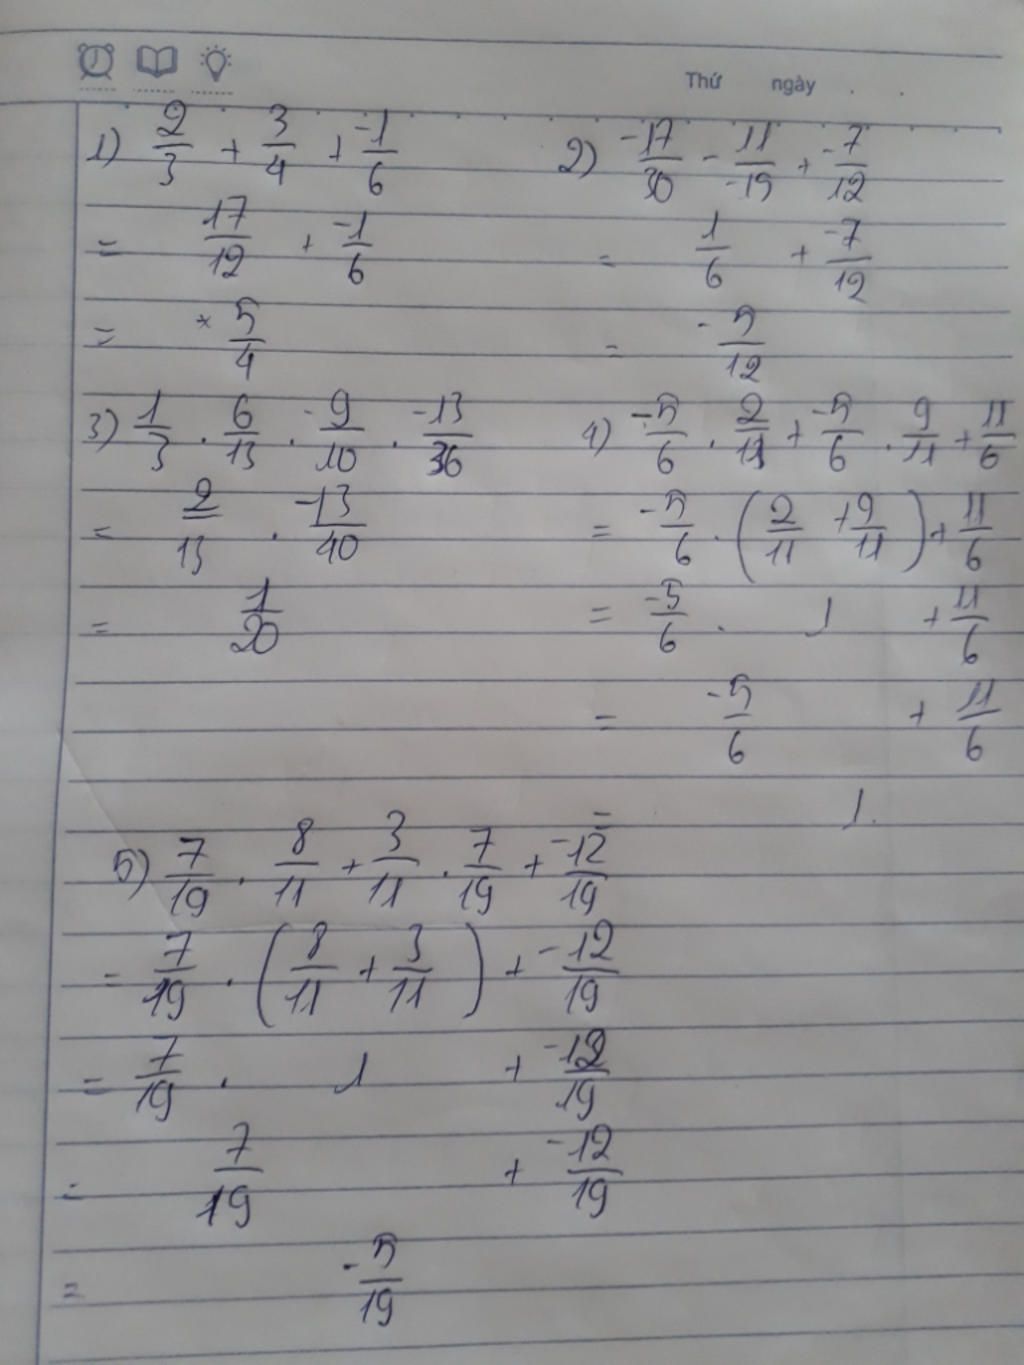 Thứ ngày
1) 2/3 + 3/4 + -1/6
= 17/12 + -1/6
= 5/4
2) -17/30 - 11/-15 + -7/12
= 1/6 + -7/12
= -5/12
3) 1/3 . 6/13 . -9/10 . -13/36
= 2/13 . -13/40
= 1/20
4) -5/6 . 2/11 + -5/6 . 9/11 + 11/6
= -5/6 . (2/11 + 9/11) + 11/6
= -5/6 . 1 + 11/6
= -5/6 + 11/6
= 1.
5) 7/19 . 8/11 + 3/11 . 7/19 + -12/19
= 7/19 . (8/11 + 3/11) + -12/19
= 7/19 . 1 + -12/19
= 7/19 + -12/19
= -5/19